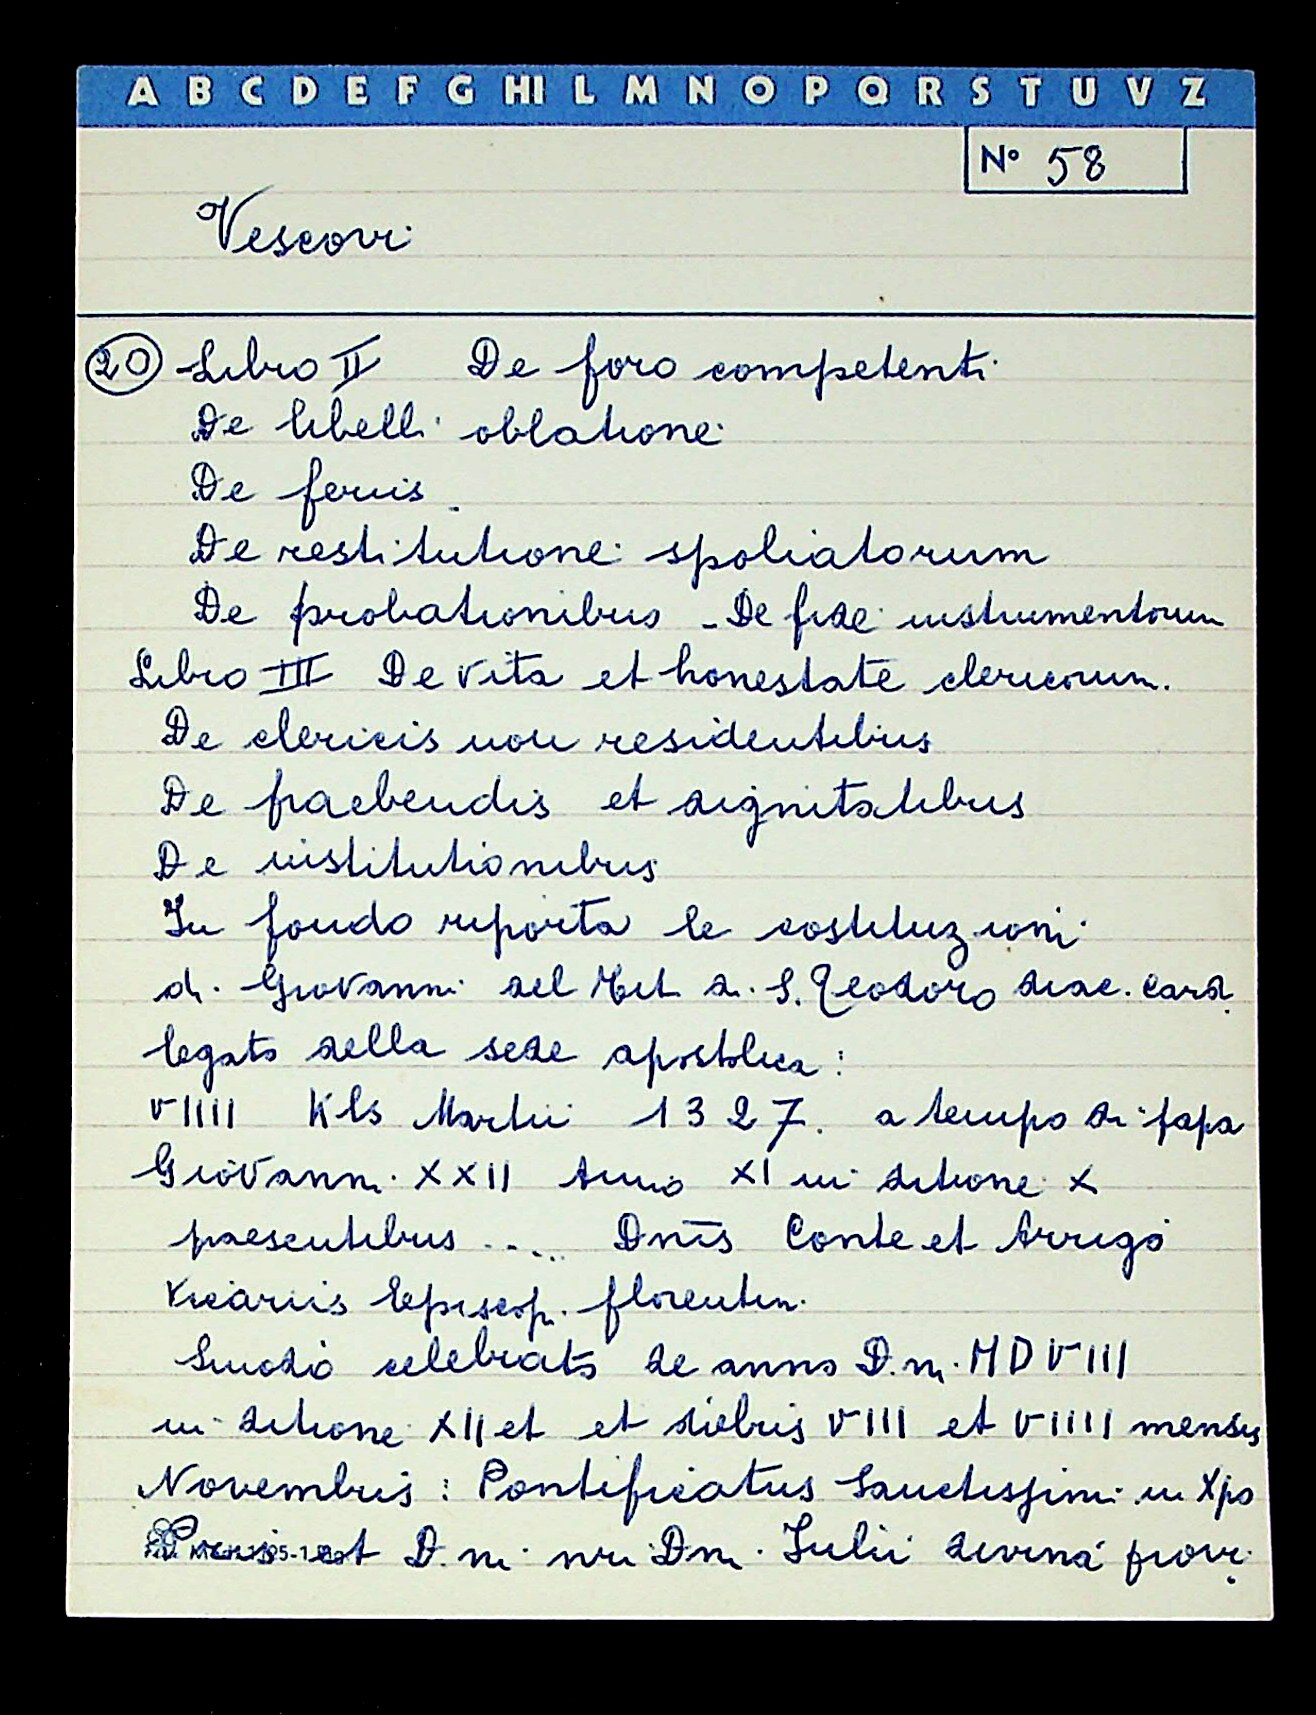 A B C D E F G HI L M N O P Q R S T U V Z
N° 58
Vescovi
20 Libro II De foro competenti
De libelli oblatione
De feriis
De restitutione spoliatorum
De probationibus - De fide instrumentorum
Libro III De vita et honestate clericorum.
De clericis non residentibus
De praebendis et dignitatibus
De institutionibus
In fondo riporta le costituzioni
di Giovanni del tit di S. Teodoro diac. card.
legato della sede apostolica:
VIIII Kls Martii 1327. a tempo di papa
Giovanni XXII Anno XI inditione X
praesentibus ..... Dnis Conte et Arrigo
Vicariis Episcop. florentin.
Sinodo celebrato de anno D.ni MDVIII
inditione XII et et diebus VIII et VIIII mensis
Novembris: Pontificatus Sanctissimi in Xpo
et D.ni nri Dni Iulii divina provi